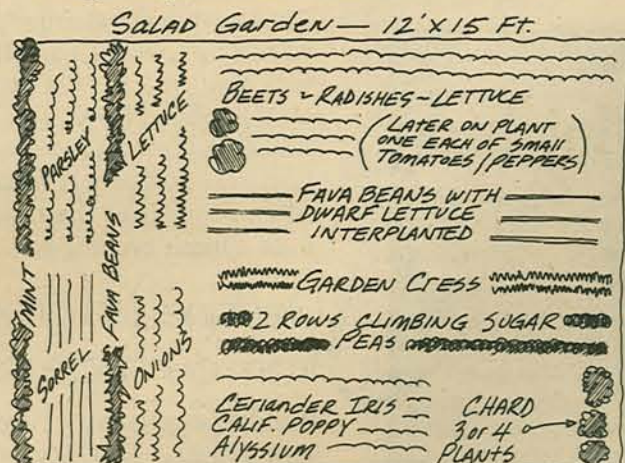 SALAD Garden — 12' X 15 FT.
MINT
PARSLEY
SORREL
FAVA BEANS
LETTUCE
ONIONS
BEETS ~ RADISHES ~ LETTUCE
(LATER ON PLANT
ONE EACH OF SMALL
TOMATOES / PEPPERS)
FAVA BEANS WITH
DWARF LETTUCE
INTERPLANTED
GARDEN CRESS
2 ROWS CLIMBING SUGAR
PEAS
CERIANDER IRIS
CALIF. POPPY
ALYSSIUM
CHARD
3 or 4
PLANTS